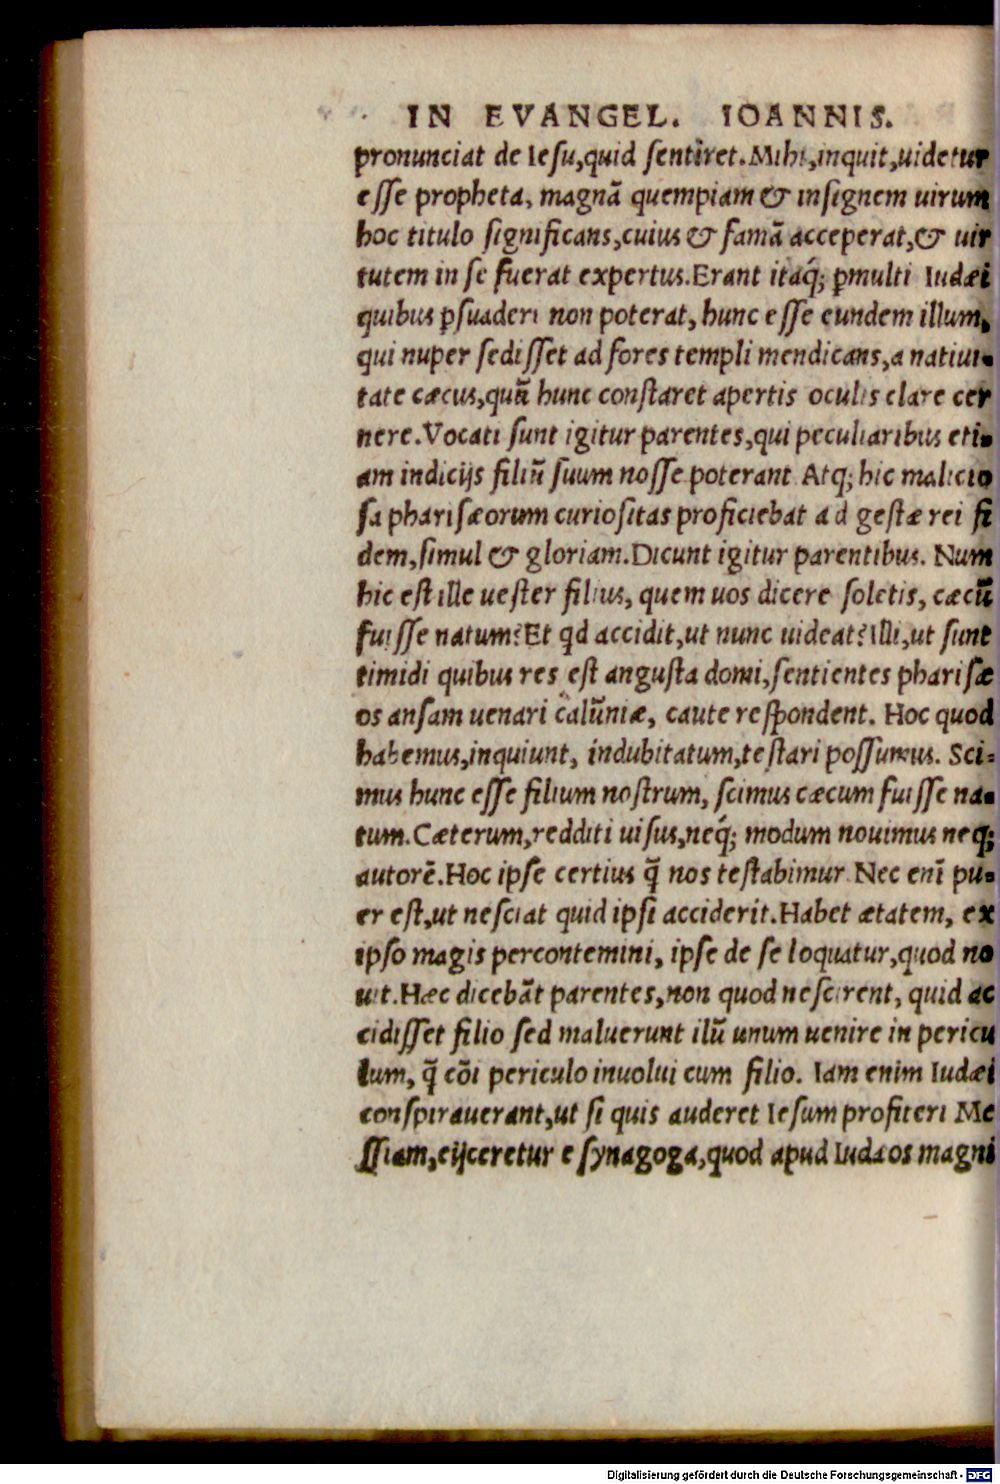 IN EVANGEL. IOANNIS.
pronunciat de Iesu,quid sentiret.Mihi,inquit,uidetur
esse propheta, magnã quempiam & insignem uirum
hoc titulo significans,cuius & famã acceperat,& uir
tutem in se fuerat expertus.Erant itaq́; ꝑmulti Iudæi
quibus ꝑsuaderi non poterat, hunc esse eundem illum,
qui nuper sedisset ad fores templi mendicans,a natiui-
tate cæcus,quũ hunc constaret apertis oculis clare cer
nere.Vocati sunt igitur parentes,qui peculiaribus eti-
am indicijs filiũ suum nosse poterant Atq; hic malicio
sa pharisæorum curiositas proficiebat ad gestæ rei fi
dem,simul & gloriam.Dicunt igitur parentibus. Num
hic est ille uester filius, quem uos dicere soletis, cæcũ
fuisse natum?Et qd accidit,ut nunc uideat?Illi,ut sunt
timidi quibus res est angusta domi,sentientes pharisæ
os ansam uenari calũniæ, caute respondent. Hoc quod
habemus,inquiunt, indubitatum,testari possumus. Sci-
mus hunc esse filium nostrum, scimus cæcum fuisse na-
tum.Cæterum,redditi uisus,neq́; modum nouimus neq;
autorẽ.Hoc ipse certius q̃ nos testabimur Nec enĩ pu-
er est,ut nesciat quid ipsi acciderit.Habet ætatem, ex
ipso magis percontemini, ipse de se loquatur,quod no
uit.Hæc dicebãt parentes,non quod nescirent, quid ac
cidisset filio sed maluerunt ilũ unum uenire in pericu
lum, q̃ cõi periculo inuolui cum filio. Iam enim Iudæi
conspirauerant,ut si quis auderet Iesum profiteri Me
ssiam,eijceretur e synagoga,quod apud Iudæos magni
Digitalisierung gefördert durch die Deutsche Forschungsgemeinschaft - DFG